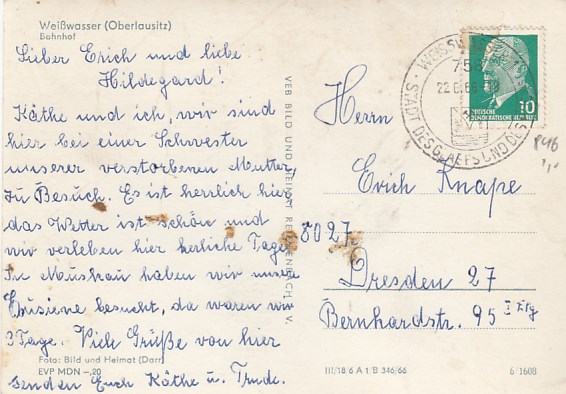 Weißwasser (Oberlausitz)
Bahnhof
Lieber Erich und liebe
Hildegard!
Käthe und ich, wir sind
hier bei einer Schwester
unserer verstorbenen Mutter,
zu Besuch. Es ist herrlich hier,
das Wetter ist schön und
wir verleben hier herliche Tage.
In Muskau haben wir unsere
besucht, da waren wir
3 Tage. Viele Grüße von hier
Foto: Bild und Heimat (Darr)
EVP MDN –,20
senden Euch Käthe u. Trude.
VEB BILD UND HEIMAT REICHENBACH I. V.
WEISSW
758
22.6.66
STADT DES GLAS UND DES
10
DEUTSCHE
DEMOKRATISCHE REPUBLIK
Herrn
Erich Knape
8027
Dresden 27
Bernhardstr. 95
III/18 6 A 1/B 346/66
6/1608